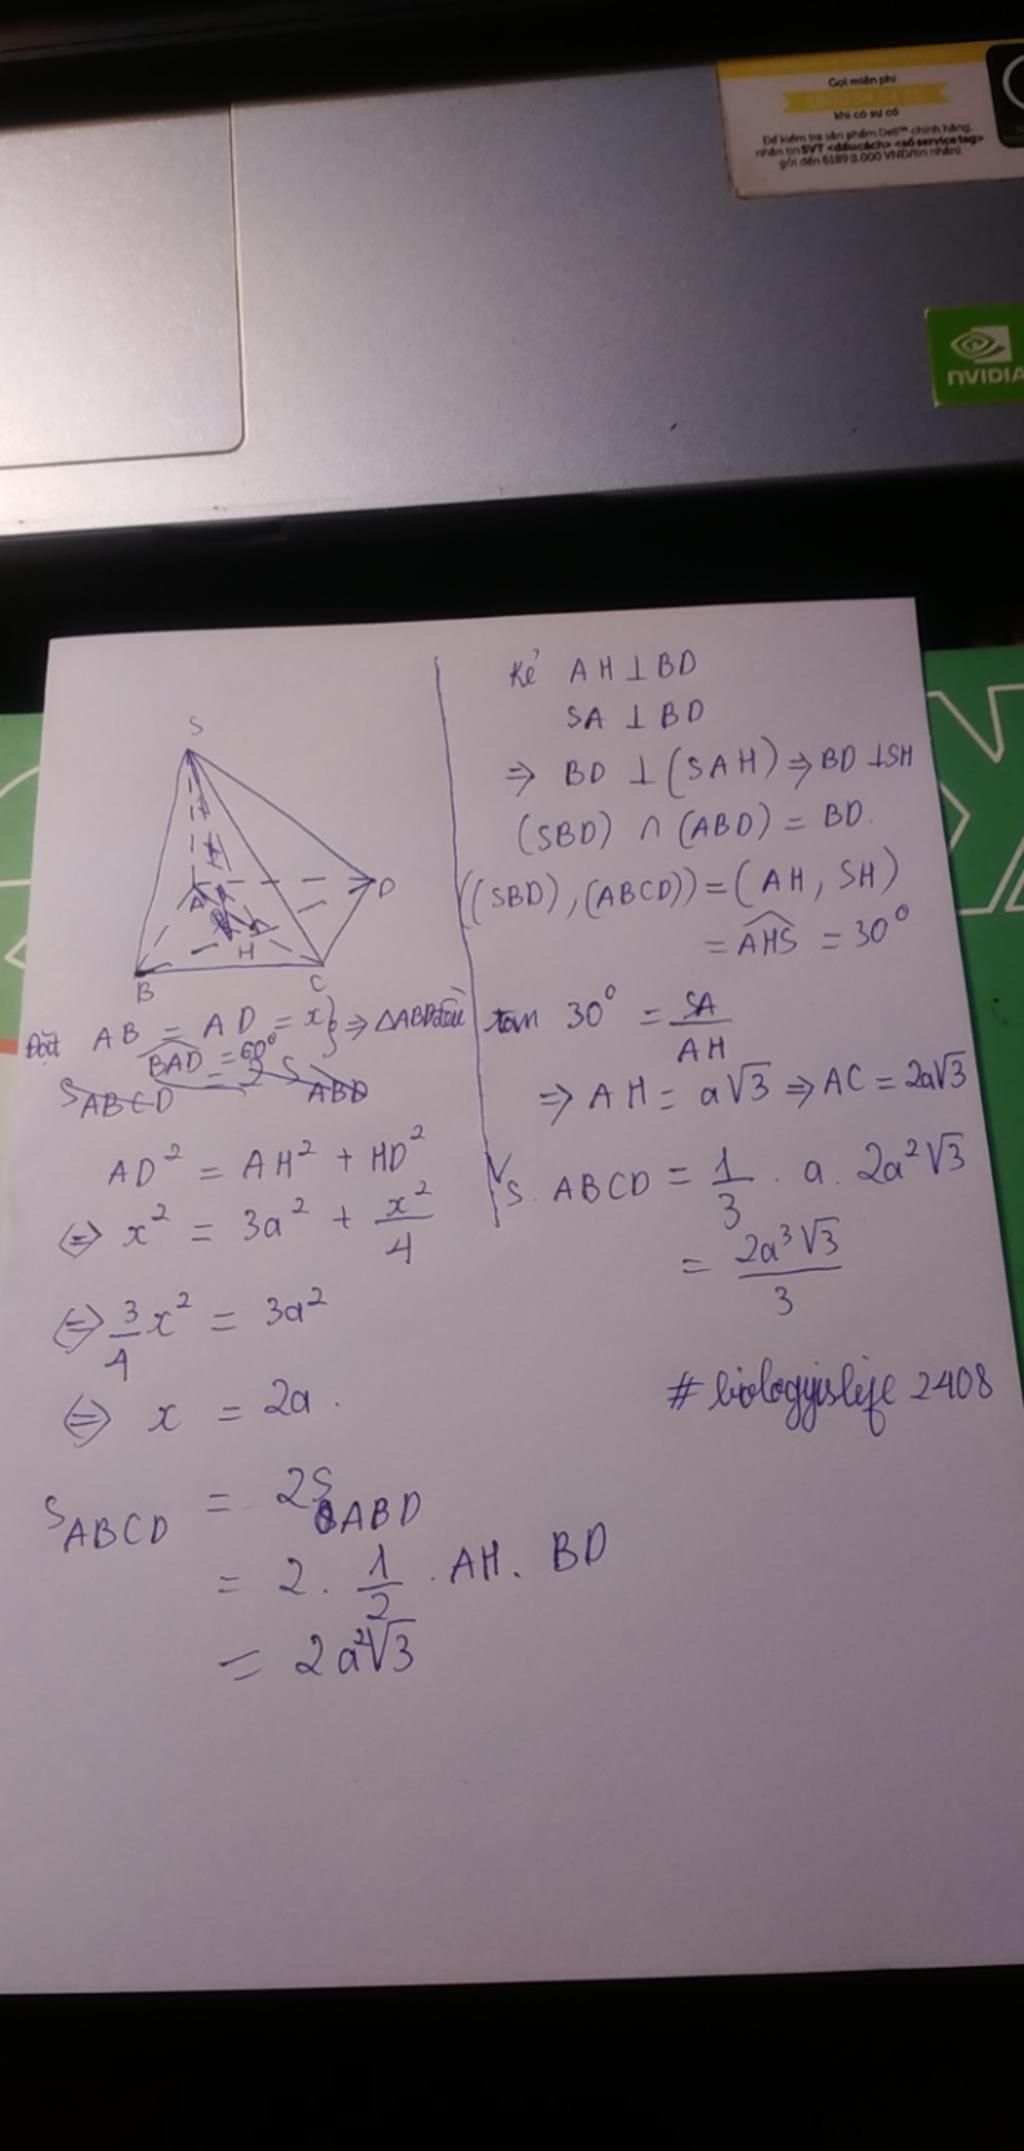 Gọi miễn phí
khi có sự cố
Để kiểm tra sản phẩm Dell™ chính hãng,
nhắn tin SVT <dấu cách> <số service tag>
gởi đến 6189 (1.000 VNĐ/tin nhắn).
nVIDIA
S
A
D
H
B
C
Đặt AB = AD = x } ⇒ ΔABD đều
BAD = 60°
S ABCD = 2 S ABD
AD² = AH² + HD²
⇔ x² = 3a² + x²/4
⇔ 3/4 x² = 3a²
⇔ x = 2a.
S ABCD = 2S ABD
= 2 . 1/2 . AH . BD
= 2a²√3
Kẻ AH ⊥ BD
SA ⊥ BD
⇒ BD ⊥ (SAH) ⇒ BD ⊥ SH
(SBD) ∩ (ABD) = BD.
((SBD), (ABCD)) = (AH, SH)
= AHS = 30°
tan 30° = SA/AH
⇒ AH = a√3 ⇒ AC = 2a√3
V S.ABCD = 1/3 . a . 2a²√3
= 2a³√3/3
# biologyislife 2408